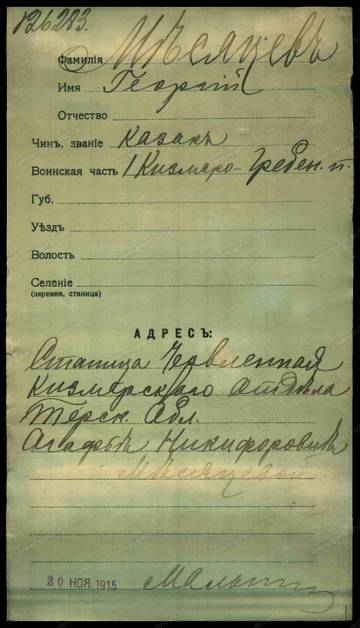 126283.
Фамилія Мѣсяцевъ
Имя Георгій
Отчество
Чинъ, званіе казакъ
Воинская часть 1 Кизляро-Гребен. п.
Губ.
Уѣздъ
Волость
Селеніе
(деревня, станица)
АДРЕСЪ:
Станица Червленная
Кизлярскаго отдѣла
Терск. Обл.
Агафьѣ Никифоровнѣ
Мѣсяцевой
30 НОЯ. 1915